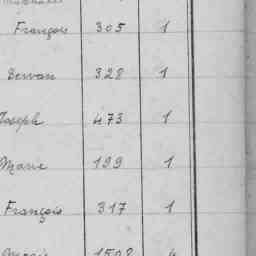 François 305 1
Servan 328 1
Joseph 473 1
Marie 199 1
François 317 1
1508 4